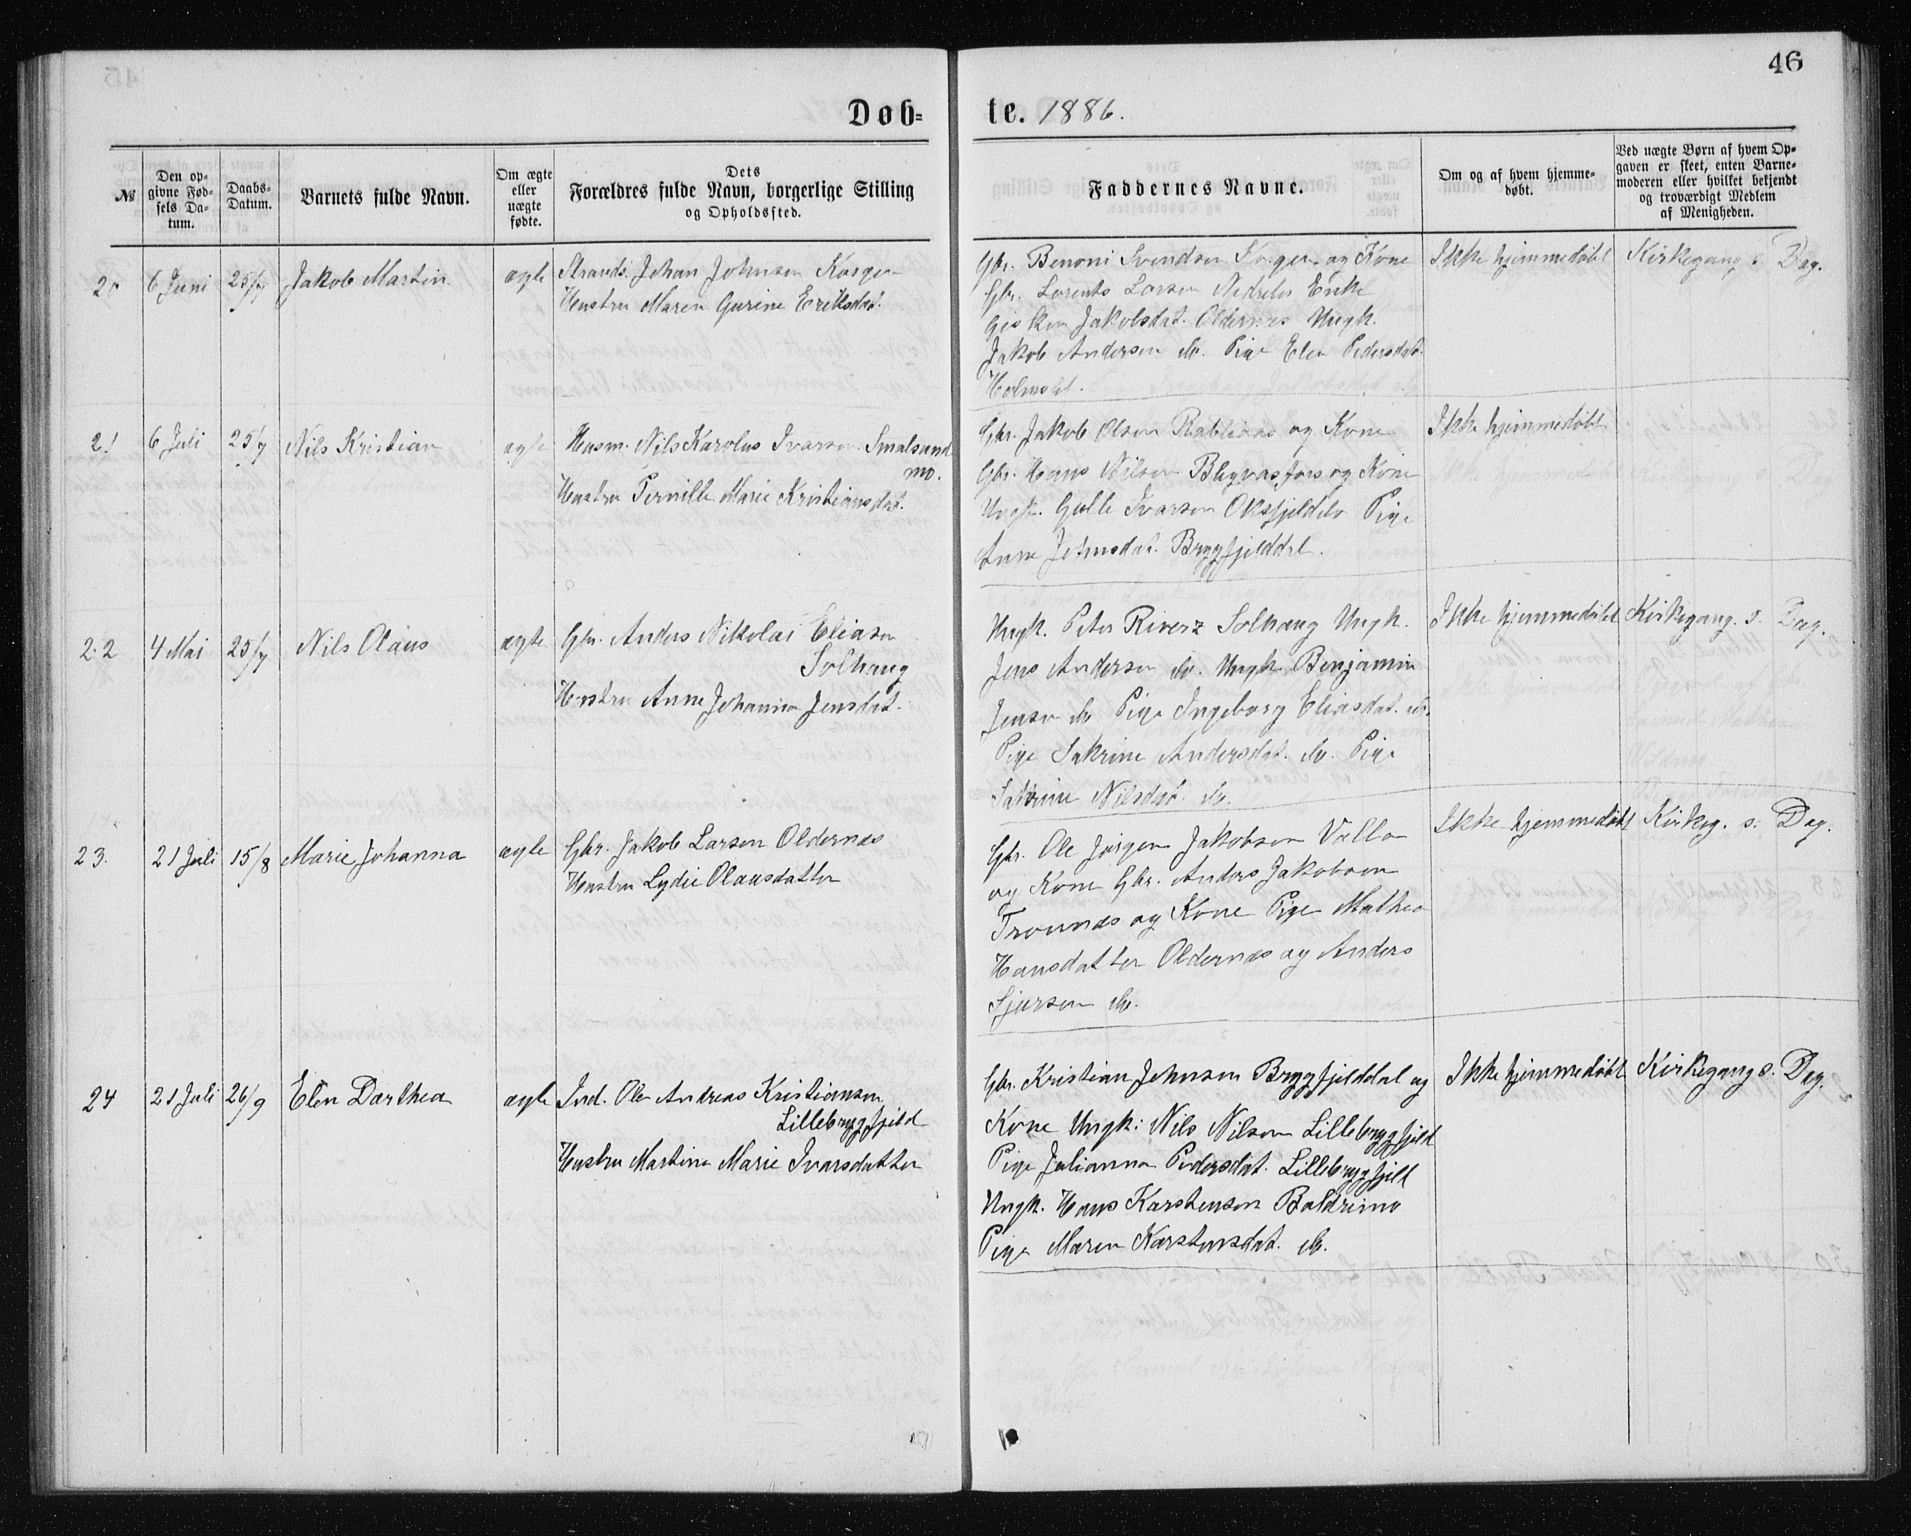 46
Døb=
te. 1886.
№
Den op-
givne Fød-
sels Da-
tum.
Daabs-
Datum.
Barnets fulde Navn.
Om ægte
eller
uægte
fødte.
Dets
Forældres fulde Navn, borgerlige Stilling
og Opholdssted.
Faddernes Navne.
Om og af hvem hjemme-
døbt.
Ved uægte Børn af hvem Op-
gaven er skeet, enten Barne-
moderen eller hvilket bekjendt
og troværdigt Medlem
af Menigheden.
20
6 Juni
25/7
Jakob Martin
ægte
Strands. Johan Johnsen
Hustru Maren Gurine Eriksdat.
Gbr. Benoni Svendsen og Kone
Gbr. Lorents Larsen Enke
Jakobsdat. Oldernes Ungk.
Jakob Andersen do. Pige Elen Pedersdat.
Ikke hjemmedøbt
Kirkegang s. Dag.
21
6 Juli
25/7
Nils Kristian
ægte
Husm. Nils Karolus Ivarsen Smalsund
mo.
Hustru Pernille Marie Kristiansdat.
Gbr. Jakob Olsen og Kone
Gbr. Hans Nilsen og Kone
Ungk. Ivarsen Pige
Anne Johnsdat. Bryggfjelddal.
Ikke hjemmedøbt
22
4 Mai
25/7
Nils Olaus
ægte
Gbr. Anders Nikolai Eliasen
Solhaug
Hustru Anne Johanna Jensdat.
Ungk. Peter Solhaug Ungk.
Jens Andersen do. Ungk. Benjamin
Jensen do Pige Ingeborg Eliasdat. do.
Pige Sakrine Andersdat. do. Pige
Sakrine Nilsdat. do.
Ikke hjemmedøbt
Kirkegang. s. Dag.
23.
21 Juli
15/8
Marie Johanna
ægte
Gbr. Jakob Larsen Oldernæs
Hustru Lydie Olausdatter
Gbr. Ole Jørgen Jakobsen Valla
og Kone Gbr. Anders Jakobsen
og Kone Pige Mathea
Hansdatter Oldernæs og Anders
Sjursen do.
Ikke hjemmedøbt
Kirkeg. s. Dag.
24
21 Juli
26/9
Elen Dorthea
ægte
Ind. Ole Andreas Kristiansen
Lillebryggfjeld
Hustru Martine Marie Ivarsdatter
Gbr. Kristian Johnsen Bryggfjelddal og
Kone Ungk: Nils Nilsen Lillebryggfjeld
Pige Julianna Pedersdat. Lillebryggfjeld
Ungk. Hans Karstensen
Pige Maren Karstensdat. do.
Ikke hjemmedøbt
Kirkegang s. Dag.